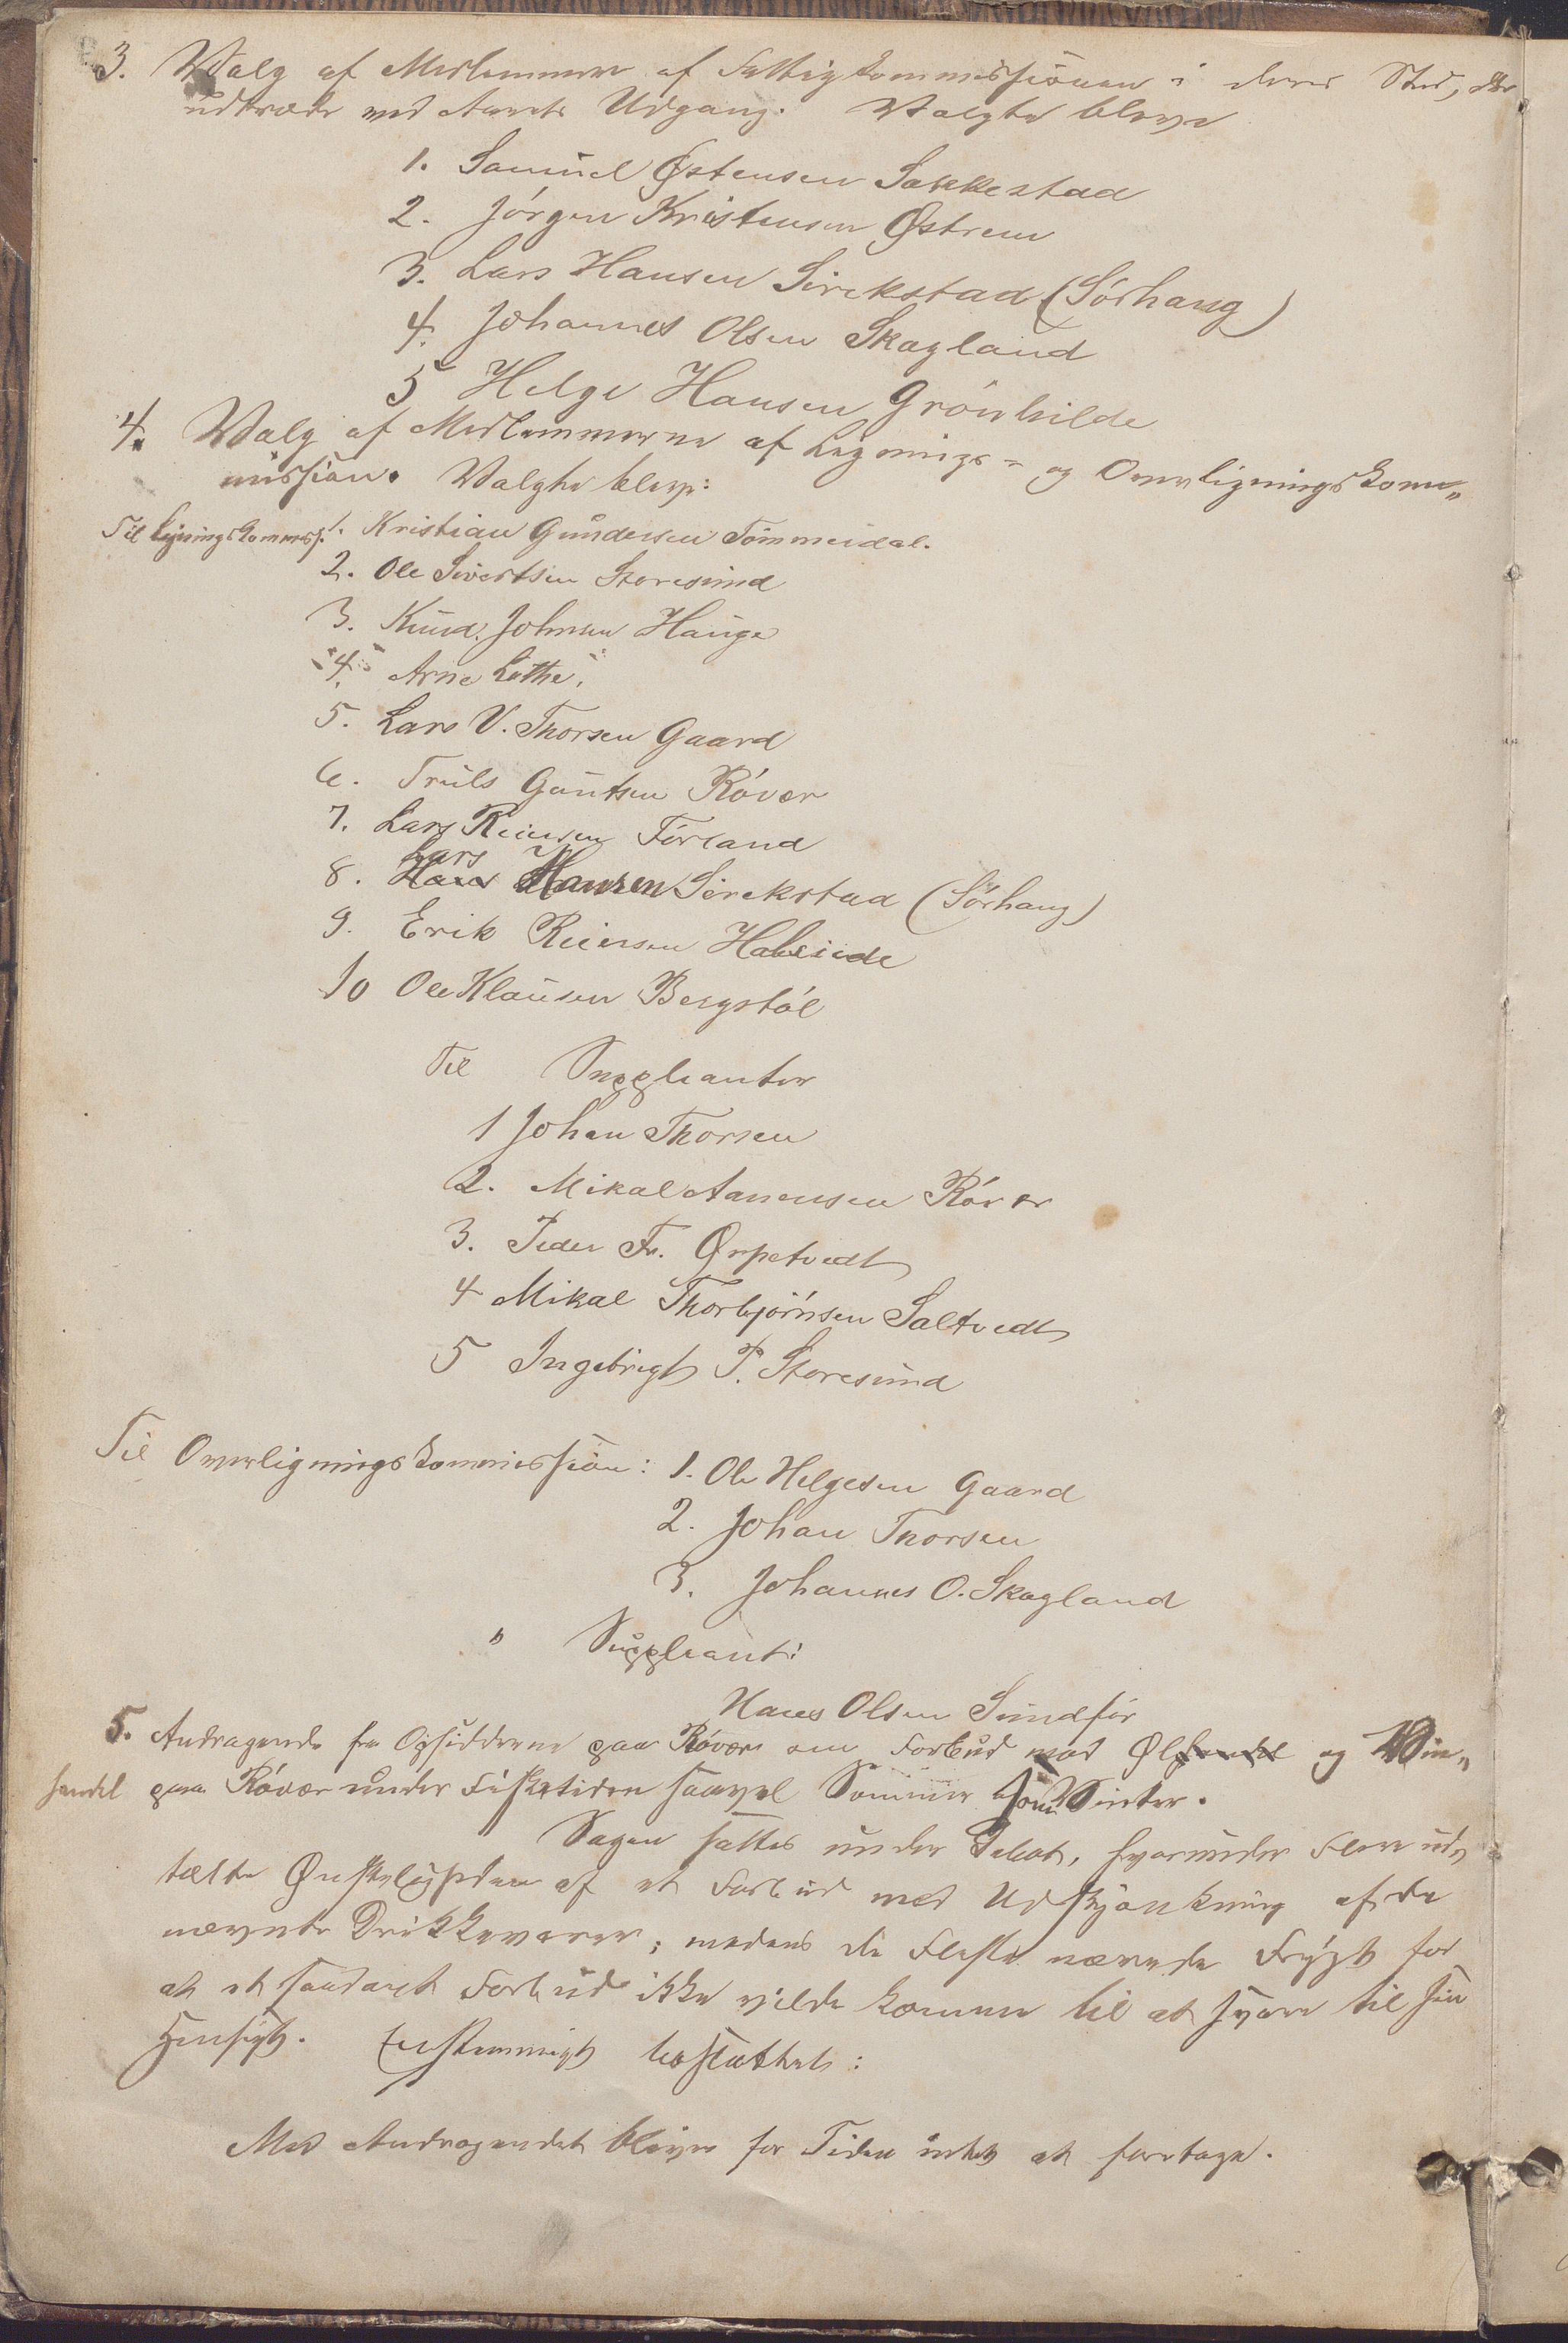 3. Valg af Medlemmer af Fattigkommissionen i deres Sted, der
udtræde ved Aarets Udgang. Valgte bleve
1. Samuel Østensen Sakkestad
2. Jörgen Kristensen Østrem
3. Lars Hansen Sirekstad (Sörhaug)
4. Johannes Olsen Skagland
5 Helge Hansen Grönhilde
4. Valg af Medlemmerne af Lignings- og Overligningskom„
mission. Valgte blev:
Til Ligningskommiss. 1. Kristian Gundersen Tömmerdal.
2. Ole Sivertsen Storesund
3. Knud Johnsen Hauge
4. Arne Lothe.
5. Lars V. Thorsen Gaard
6. Truls Gautsen Rövær
7. Lars Reiersen Förland
Lars
8. Hans Hansen Sirekstad (Sörhaug)
9. Erik Reiersen
10 Ole Klausen Bergstöl
Til Suppleanter
1 Johan Thorsen
2. Mikal Aanensen Rövær
3. Peder Fr. Ørpetvedt
4 Mikal Thorbjörnsen Saltvedt
5 Ingebrigt P. Storesund
Til Overligningskommission: 1. Ole Helgesen Gaard
2. Johan Thorsen
3. Johannes O. Skagland
" Suppleant:
Hans Olsen Sundför
5. Andragende fra Opsidderne paa Rövær om Forbud mod Ølhandel og Vin„
handel paa Rövær under Fisketiden saavel Sommer som Vinter.
Sagen sattes under Debat, hvorunder Flere ud„
talte Ønskeligheden af et Forbud mod Udskjænkning af de
nævnte Drikkevarer; medens de Fleste nærede Frygt for
at et saadant Forbud ikke vilde komme til at svare til sin
Hensigt. Enstemmigt besluttet:
Med Andragendet bliver for Tiden intet at foretage.